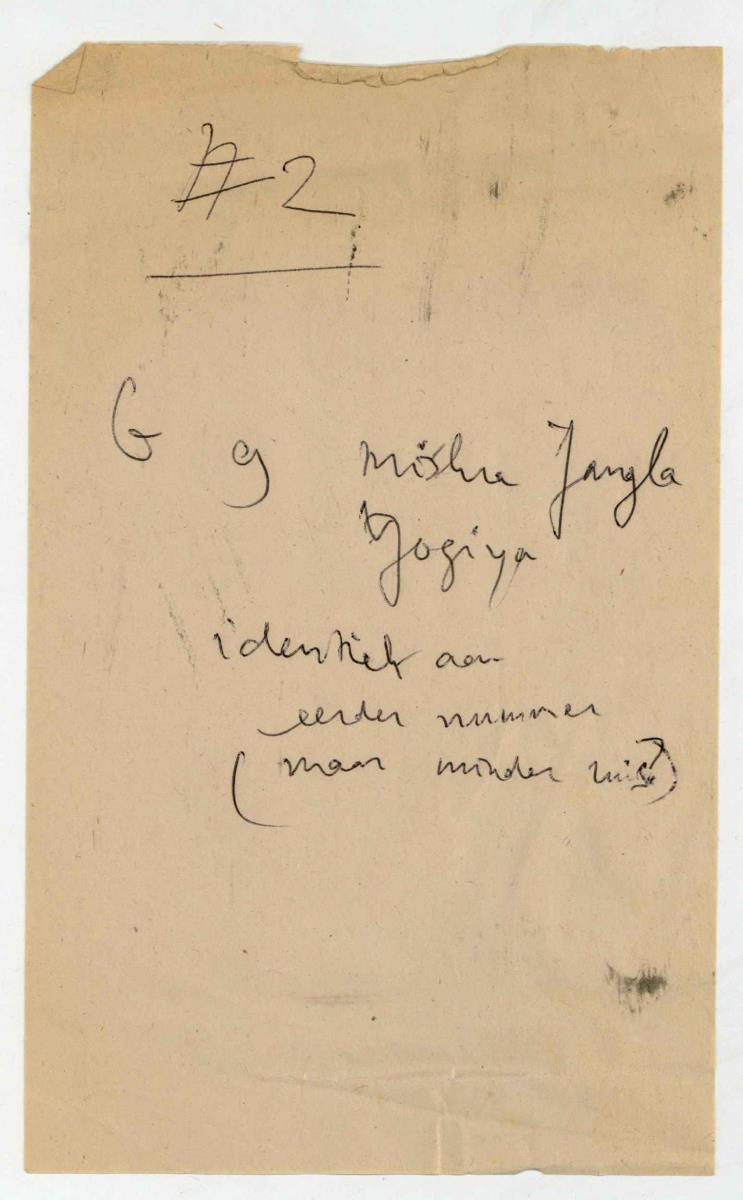 #2
G g mishra Jangla
Jogiya
identiek aan
eerder nummer
(maar minder mist)